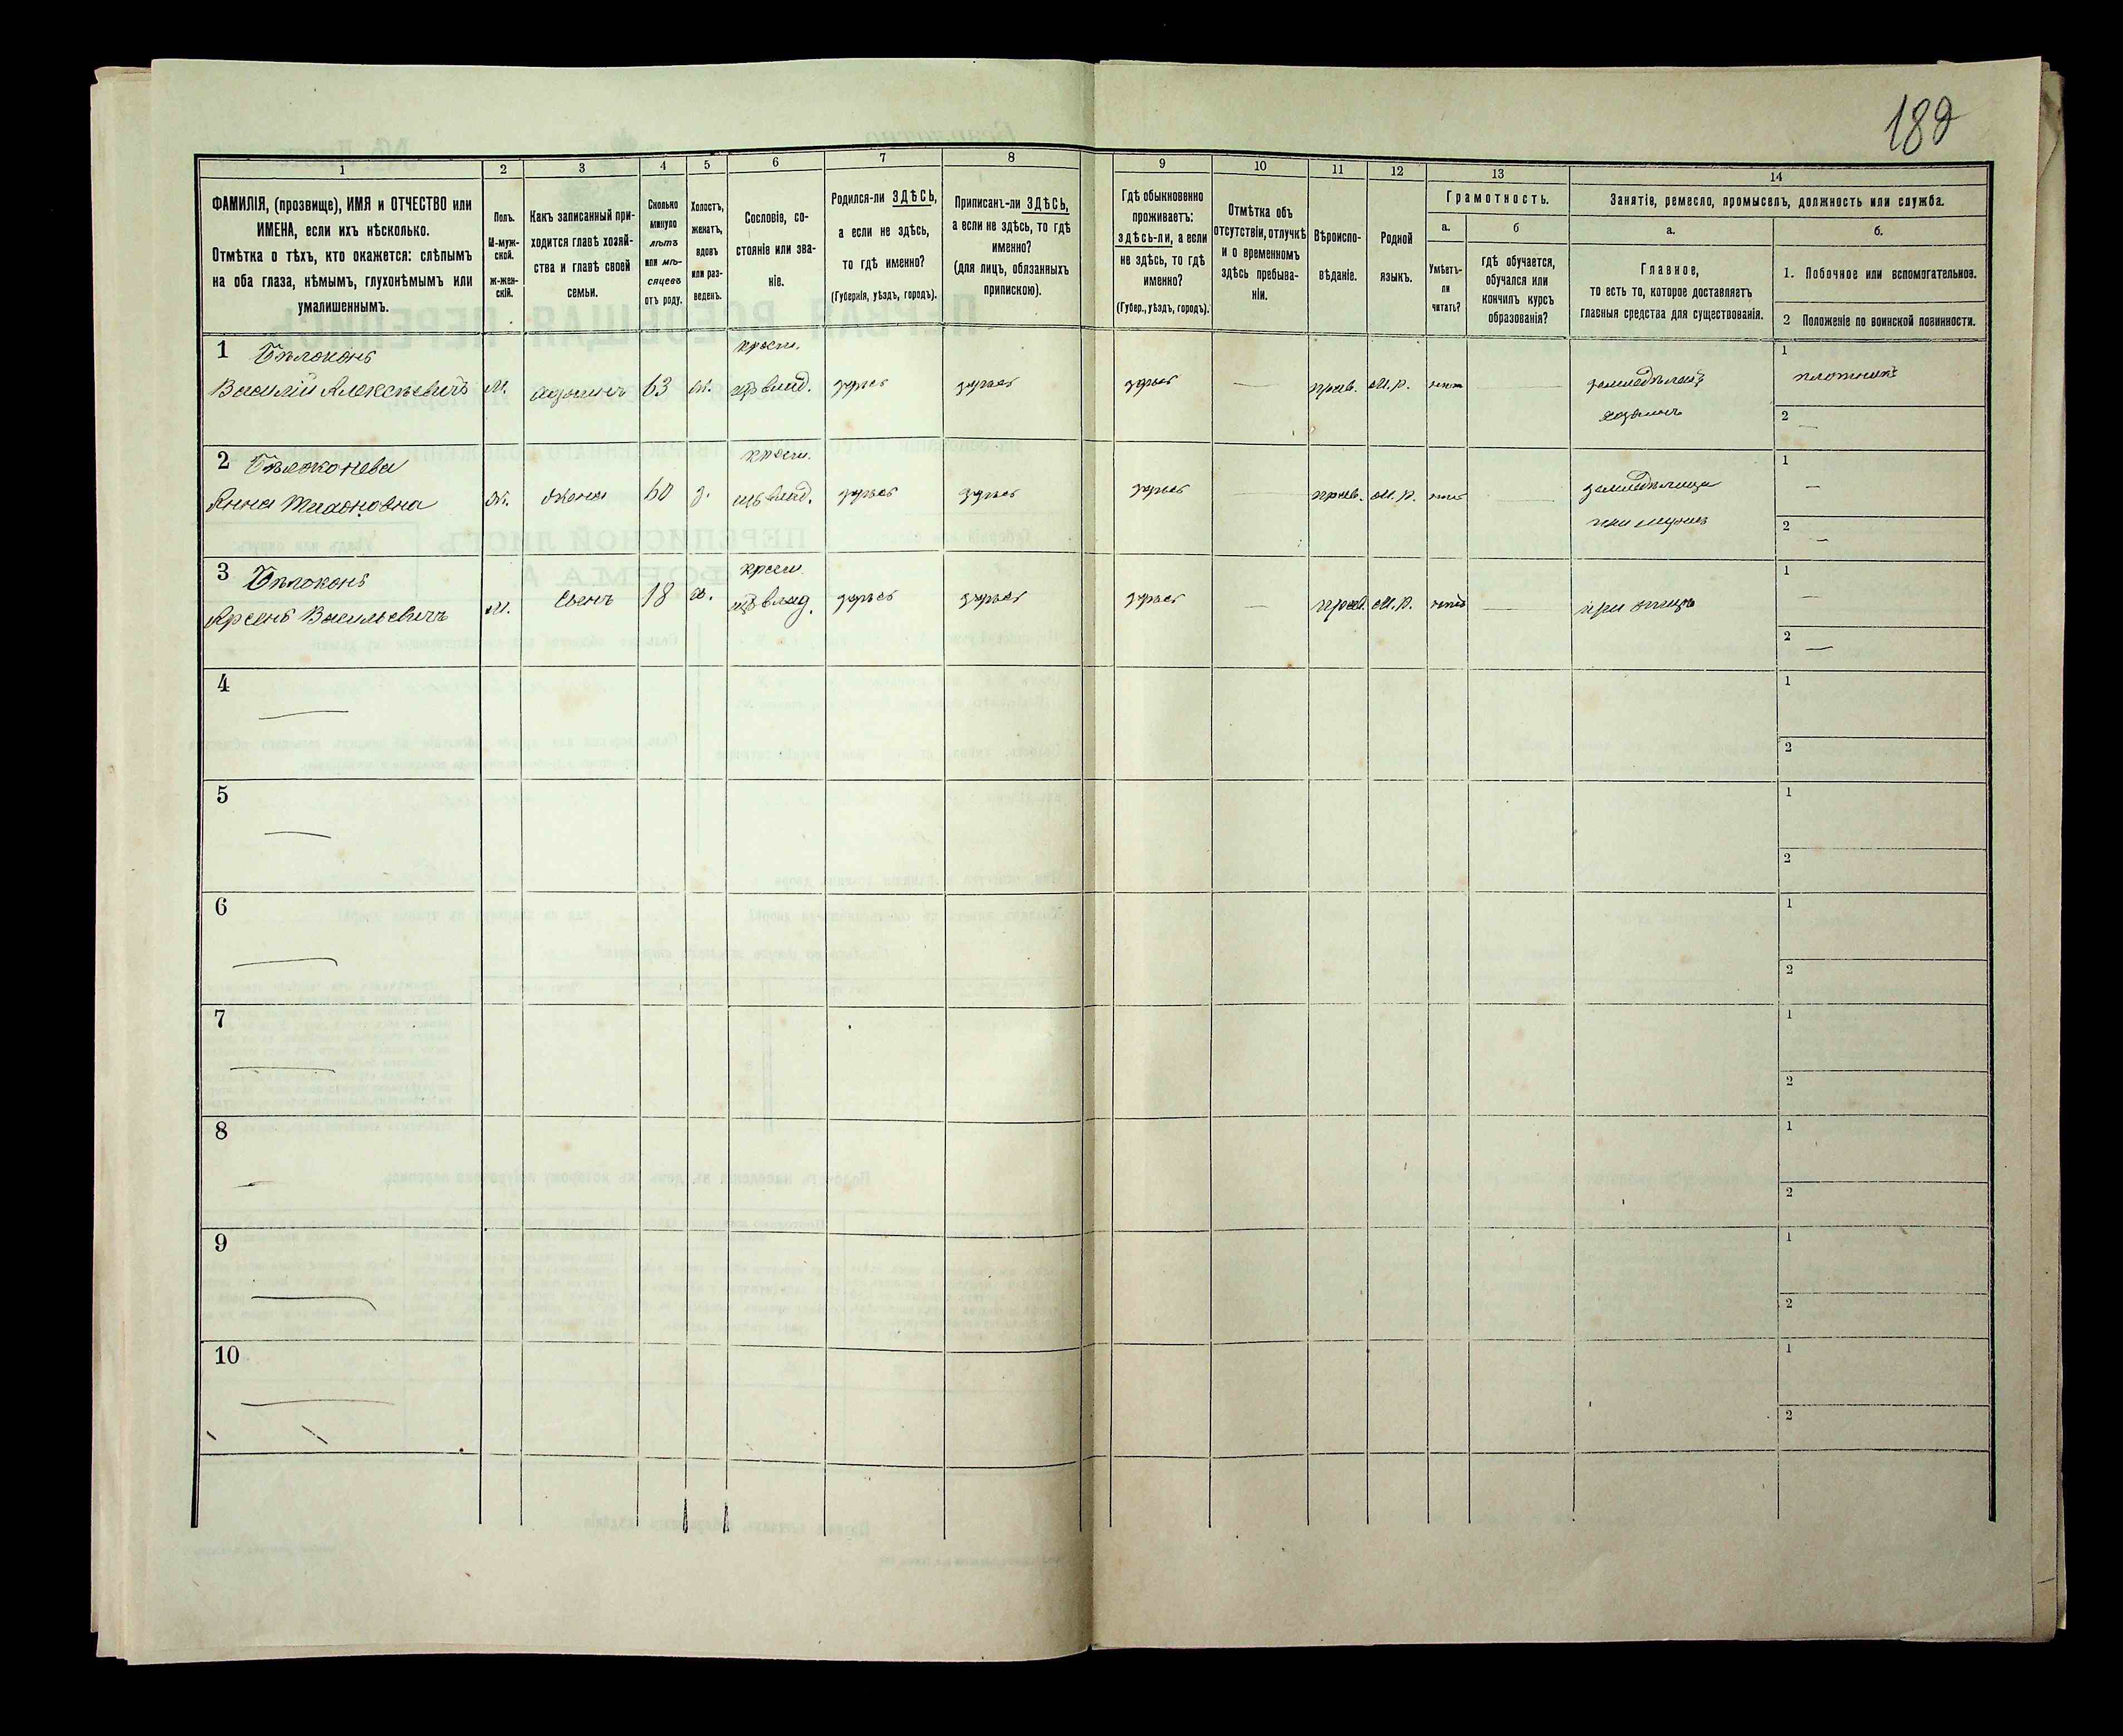 189
1
2
3
4
5
6
7
8
9
10
11
12
13
14
ФАМИЛІЯ, (прозвище), ИМЯ и ОТЧЕСТВО или
ИМЕНА, если ихъ нѣсколько.
Отмѣтка о тѣхъ, кто окажется: слѣпымъ
на оба глаза, нѣмымъ, глухонѣмымъ или
умалишеннымъ.
Полъ.
М-муж-
ской.
ж-жен-
скій.
Какъ записанный при-
ходится главѣ хозяй-
ства и главѣ своей
семьи.
Сколько
минуло
лѣтъ
или мѣ-
сяцевъ
отъ роду.
Холостъ,
женатъ,
вдовъ
или раз-
веденъ.
Сословіе, со-
стояніе или зва-
ніе.
Родился-ли ЗДѢСЬ,
а если не здѣсь,
то гдѣ именно?
(Губернія, уѣздъ, городъ).
Приписанъ-ли ЗДѢСЬ,
а если не здѣсь, то гдѣ
именно?
(для лицъ, обязанныхъ
припискою).
Гдѣ обыкновенно
проживаетъ:
здѣсь-ли, а если
не здѣсь, то гдѣ
именно?
(Губер., уѣздъ, городъ).
Отмѣтка объ
отсутствіи, отлучкѣ
и о временномъ
здѣсь пребыва-
ніи.
Вѣроиспо-
вѣданіе.
Родной
языкъ.
Грамотность.
а.
Умѣетъ-
ли
читать?
б
гдѣ обучается,
обучался или
кончилъ курсъ
образованія?
Занятіе, ремесло, промыселъ, должность или служба.
а.
Главное,
то есть то, которое доставляетъ
главныя средства для существованія.
б.
1. Побочное или вспомогательное.
2 Положеніе по воинской повинности.
1 Бѣлоконь крест.
Василій Алексѣевичъ м. хозяинъ 63 ж. влад. здѣсь здѣсь здѣсь — прав. м.р. нѣтъ — земледѣлецъ 1 плотникъ
хозяинъ 2 —
2 Бѣлоконева крест.
Анна Тихоновна ж. жена 60 з. влад. здѣсь здѣсь здѣсь — прав. м.р. нѣтъ — земледѣлица 1 —
при мужѣ 2 —
3 Бѣлоконь крест.
Арсенъ Васильевичъ м. сынъ 18 х. влад. здѣсь здѣсь здѣсь — прав. м.р. нѣтъ — при отцѣ 1 —
2 —
4 — 1
2
5 — 1
2
6 — 1
2
7 — 1
2
8 — 1
2
9 — 1
2
10 — 1
2